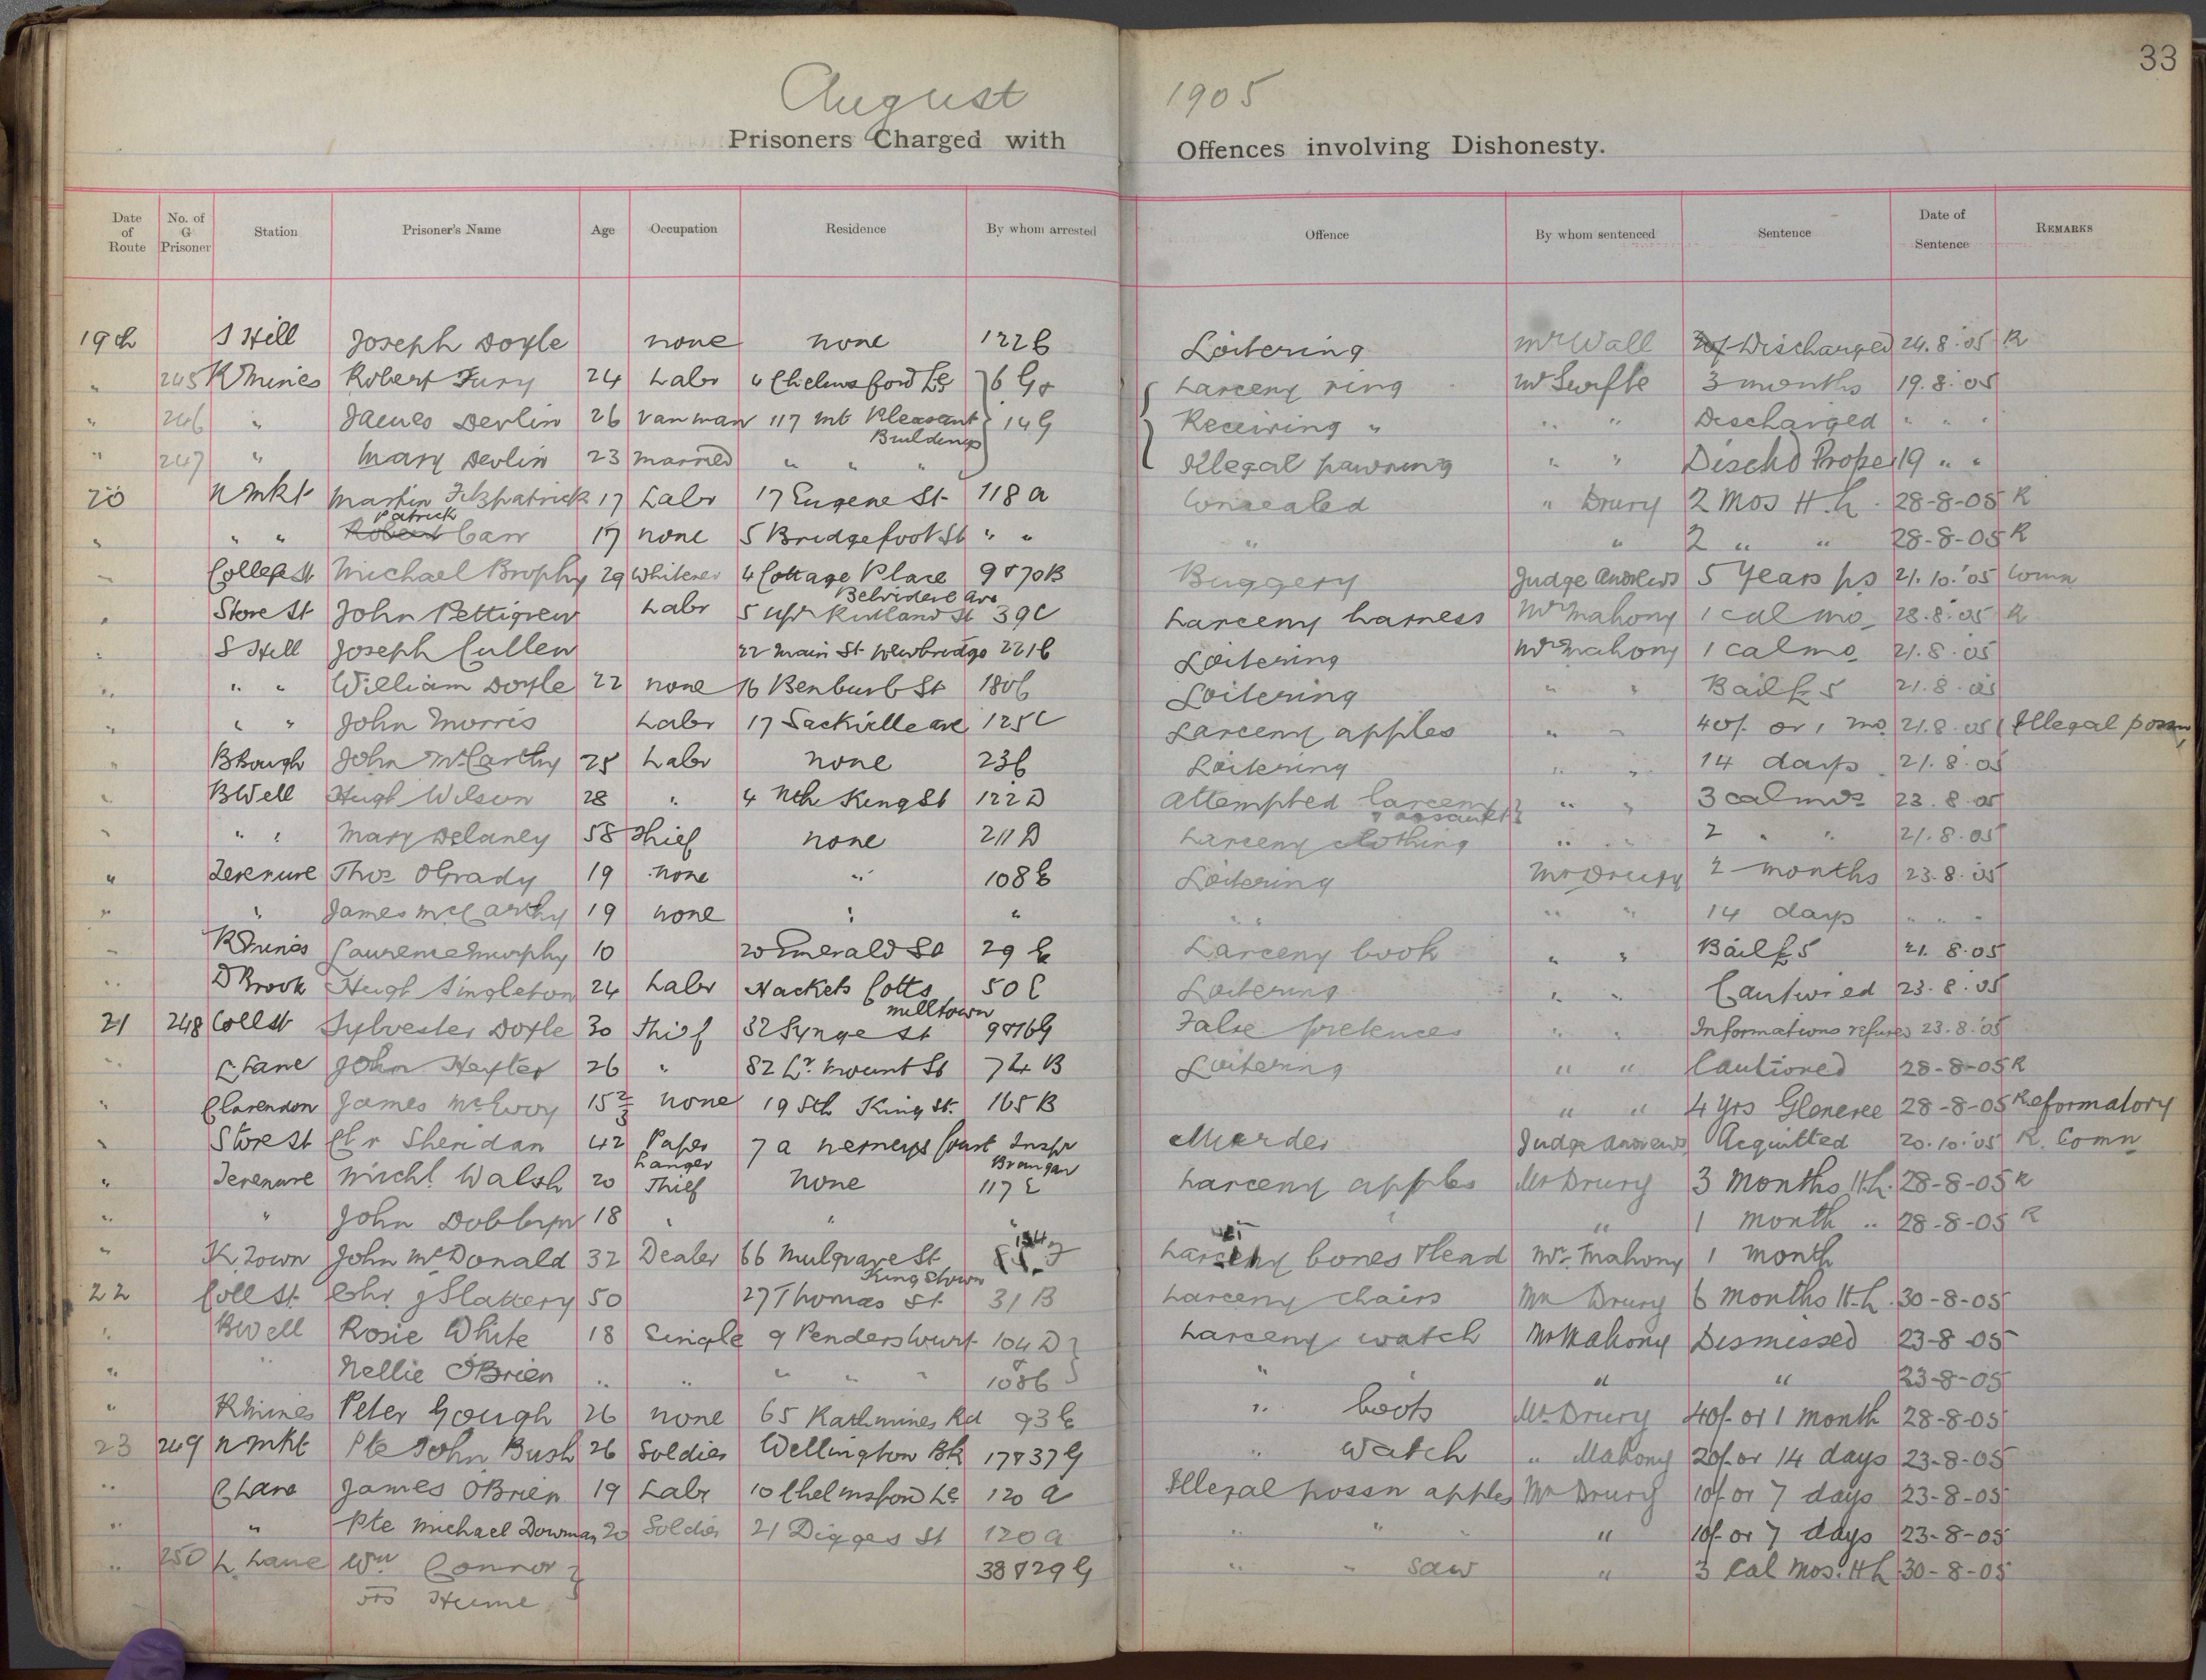 33
August 1905
Prisoners Charged with Offences involving Dishonesty.
Date of Route No. of G Prisoner Station Prisoner's Name Age Occupation Residence By whom arrested Offence By whom sentenced Sentence Date of Sentence REMARKS
19th S Hill Joseph Doyle none none 122 C Loitering Mr Wall Discharged 24.8.05 R
" 245 RMines Robert Fury 24 Labr 4 Chelmsford Le 6 G & Larceny ring Mr Swifte 3 months 19.8.05
" 246 " James Devlin 26 vanman 117 Mt Pleasant Buildings 14 G Receiving " " " Discharged " " "
" 247 " Mary Devlin 23 married " " " Illegal pawning " " Dischd Proper 19 " "
20 N Mkt Martin Fitzpatrick 17 Labr 17 Eugene St 118 A Concealed " Drury 2 Mos H.L. 28-8-05 R
" " " Robert Patrick Carr 17 none 5 Bridgefoot St " " " " 2 " " 28-8-05 R
" College St Michael Brophy 29 Whitener 4 Cottage Place Belvidere Ave 9 & 70 B Buggery Judge Andrews 5 Years ps 21.10.'05 Comn
" Store St John Pettigrew Labr 5 upr Rutland St 39 C Larceny harness Mr Mahony 1 cal mo 28.8.05 R
" S Hill Joseph Cullen 22 Main St Newbridge 221 C Loitering Mr Mahony 1 cal mo 21.8.05
" " " William Doyle 22 none 16 Benburb St 180 C Loitering " " Bail £5 21.8.05
" " " John Morris Labr 17 Sackville ave 125 C Larceny apples " " 40/- or 1 mo 21.8.05 (Illegal possn)
" BRough John McCarthy 25 Labr none 23 C Loitering " " 14 days 21.8.05
" BWell Hugh Wilson 28 " 4 Nth King St 122 D Attempted larceny & assault " " 3 cal mos 23.8.05
" " " Mary Delaney 58 Thief none 211 D Larceny clothing " " 2 " " 21.8.05
" Terenure Thos OGrady 19 none " 108 E Loitering Mr Drury 2 months 23.8.05
" " James McCarthy 19 none " " " " " " 14 days " " "
" RMines Laurence Murphy 10 20 Emerald Sq 29 E Larceny book " " Bail £5 21.8.05
" D Brook Hugh Singleton 24 Labr Hackets Cotts Milltown 50 E Loitering " " Cautioned 23.8.05
21 248 Coll St Sylvester Doyle 30 Thief 32 Synge St 9 & 16 G False pretences " " Informations refused 23.8.05
" C Lane John Hexter 26 " 82 Lr Mount St 74 B Loitering " " Cautioned 28-8-05 R
" Clarendon James McEvoy 15 2/3 none 19 Sth King St. 165 B " " 4 yrs Glencree 28-8-05 Reformatory
" Store St Chr Sheridan 42 Paper hanger 7a Nerneys Court Inspr Brangan Murder Judge Andrews Acquitted 20.10.'05 R. Comn
" Terenure Michl. Walsh 20 Thief none 117 E Larceny apples Mr Drury 3 Months H.L. 28-8-05 R
" " John Dobbyn 18 " " " " " 1 month " 28-8-05 R
" K.Town John McDonald 32 Dealer 66 Mulgrave St Kingstown 134 F Larceny bones & lead Mr. Mahony 1 month
22 Coll St. Chr. J Slattery 50 27 Thomas St. 31 B Larceny chairs Mr Drury 6 months H.L. 30-8-05
" BWell Rosie White 18 Single 9 Penders Court 104 D & Larceny watch Mr Mahony Dismissed 23-8-05
" " Nellie O'Brien " " " " " 108 C " " " 23-8-05
" RMines Peter Gough 26 none 65 Rathmines Rd 93 E " boots Mr. Drury 40/- or 1 month 28-8-05
23 249 N Mkt Pte John Bush 26 Soldier Wellington Bk 17 & 37 G " Watch " Mahony 20/- or 14 days 23-8-05
" C Lane James O'Brien 19 Labr 10 Chelmsford Le 120 A Illegal possn apples Mr Drury 10/- or 7 days 23-8-05
" " Pte Michael Dowman 20 Soldier 21 Digges St 120 A " " " " 10/- or 7 days 23-8-05
" 250 C. Lane Wm Connor 38 & 29 G " " saw " 3 Cal Mos. H L 30-8-05
ors Hume